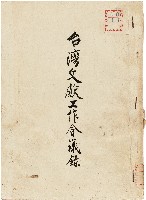 台灣文獻工作會議錄